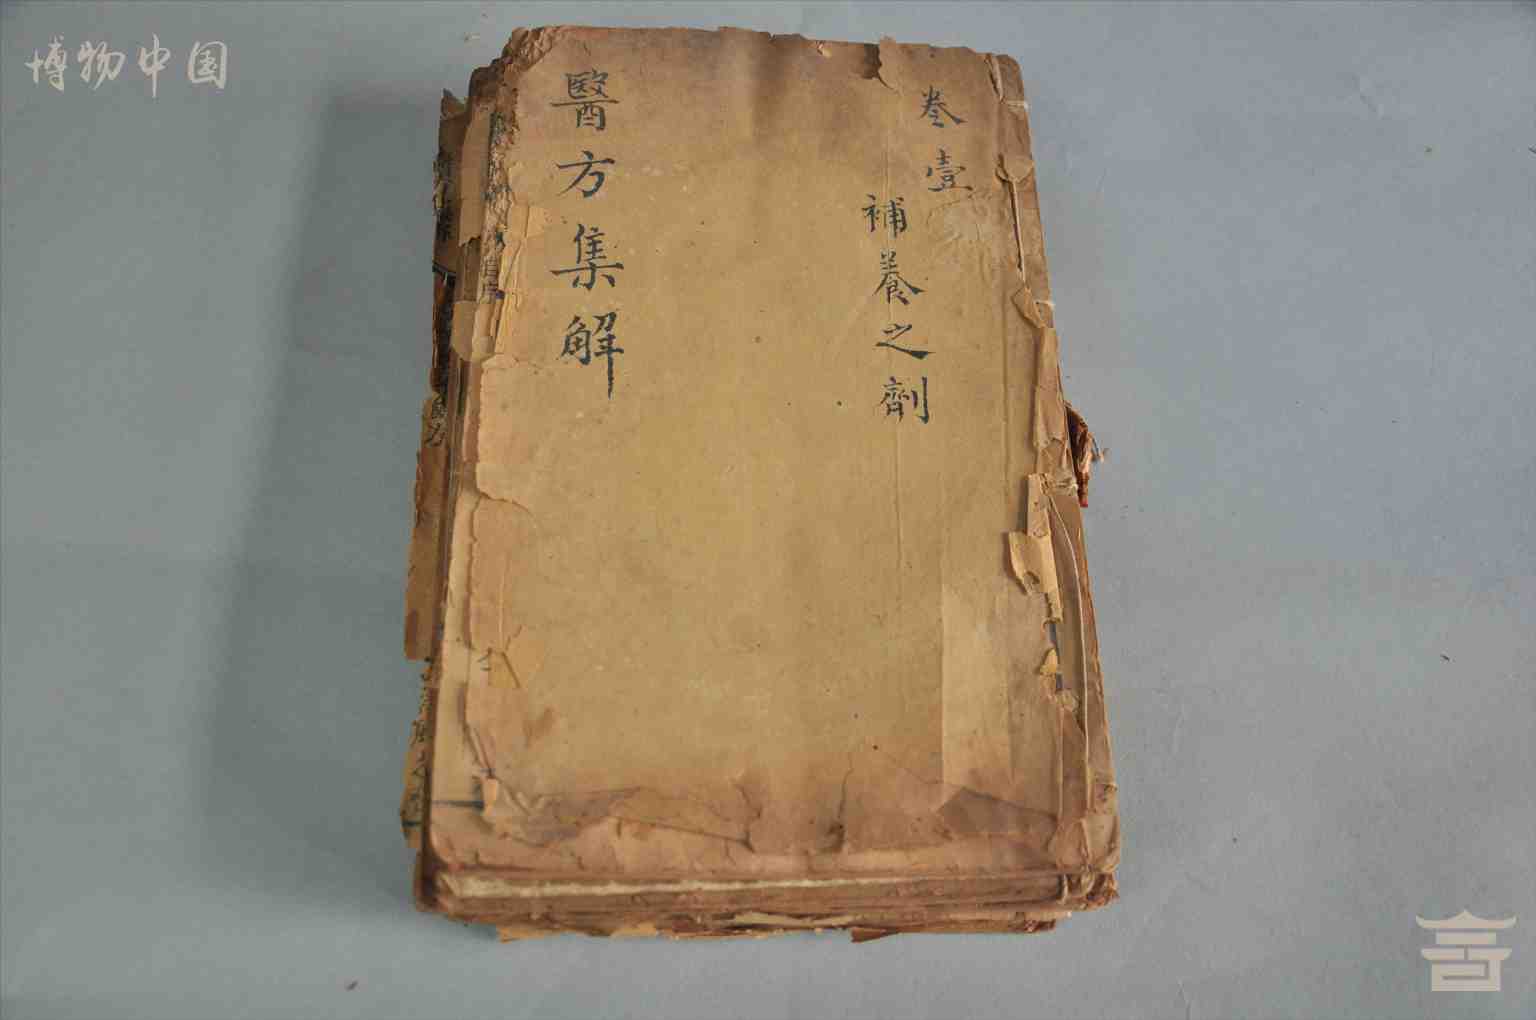 博物中国
卷壹
補養之劑
醫方集解